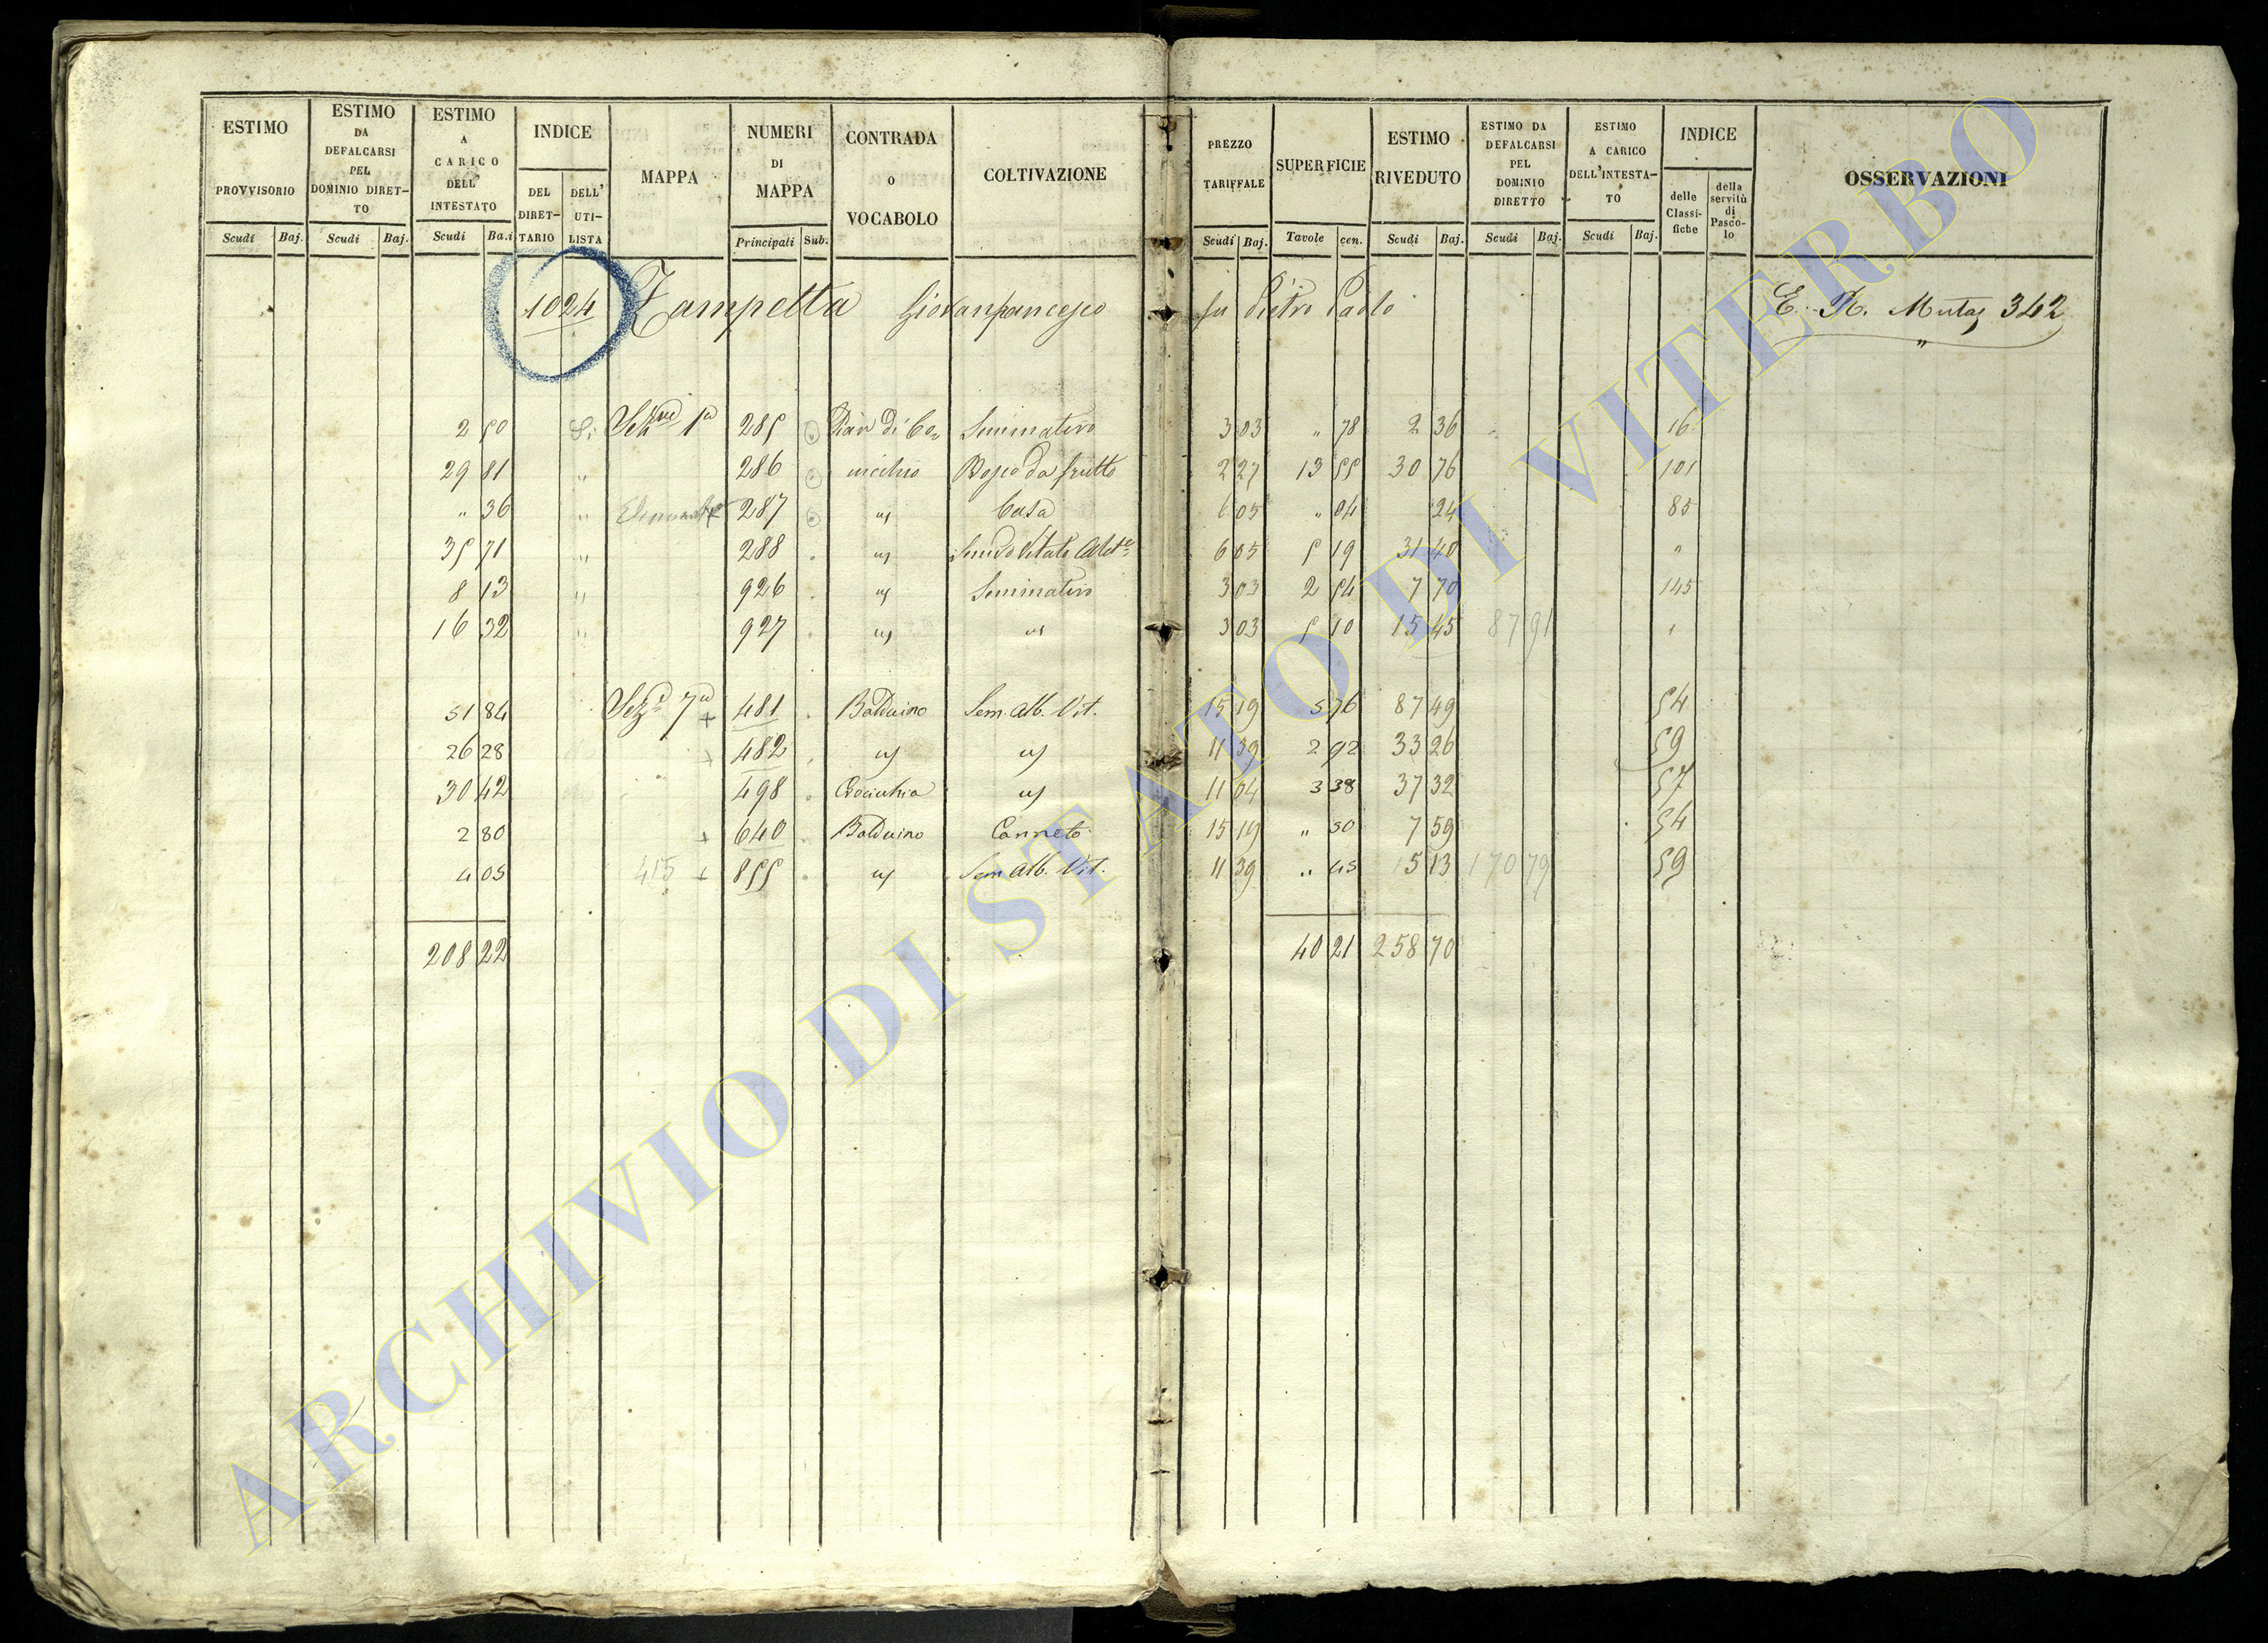 ESTIMO PROVVISORIO Scudi Baj.
ESTIMO DA DEFALCARSI PEL DOMINIO DIRET-TO Scudi Baj.
ESTIMO A CARICO DELL' INTESTATO Scudi Ba.i
INDICE DEL DIRET-TARIO DELL' UTI-LISTA
MAPPA
NUMERI DI MAPPA Principali Sub.
CONTRADA O VOCABOLO
COLTIVAZIONE
PREZZO TARIFFALE Scudi Baj.
SUPERFICIE Tavole cen.
ESTIMO RIVEDUTO Scudi Baj.
ESTIMO DA DEFALCARSI PEL DOMINIO DIRETTO Scudi Baj.
ESTIMO A CARICO DELL'INTESTA-TO Scudi Baj.
INDICE delle Classi-fiche della servitù di Pasco-lo
OSSERVAZIONI
1024 Zampetta Giovanfrancesco fu Pietro Paolo E. R. Mutaz 342
2 50 Si Sezne 1a 285 Pian di Seminativo 3 03 " 78 2 36 16
29 81 " 286 Bosco da frutto 2 27 13 55 30 76 101
" 36 " 287 us Casa 6 05 " 04 24 85
35 71 " 288 us 6 05 5 19 31 40 "
8 13 " 926 us Seminativo 3 03 2 54 7 70 145
16 32 " 927 us us 3 03 5 10 15 45 87 91 "
51 84 Sez. 7a + 481 Balduino Sem. Alb. Vit. 15 19 5 76 87 49 54
26 28 + 482 us us 11 39 2 92 33 26 59
30 42 498 Crocicchia us 11 04 3 38 37 32 57
2 80 + 640 Balduino Canneto 15 19 " 50 7 59 54
4 05 415 + 855 us Sem. Alb. Vit. 11 39 " 45 5 13 170 79 59
208 22 40 21 258 70
ARCHIVIO DI STATO DI VITERBO